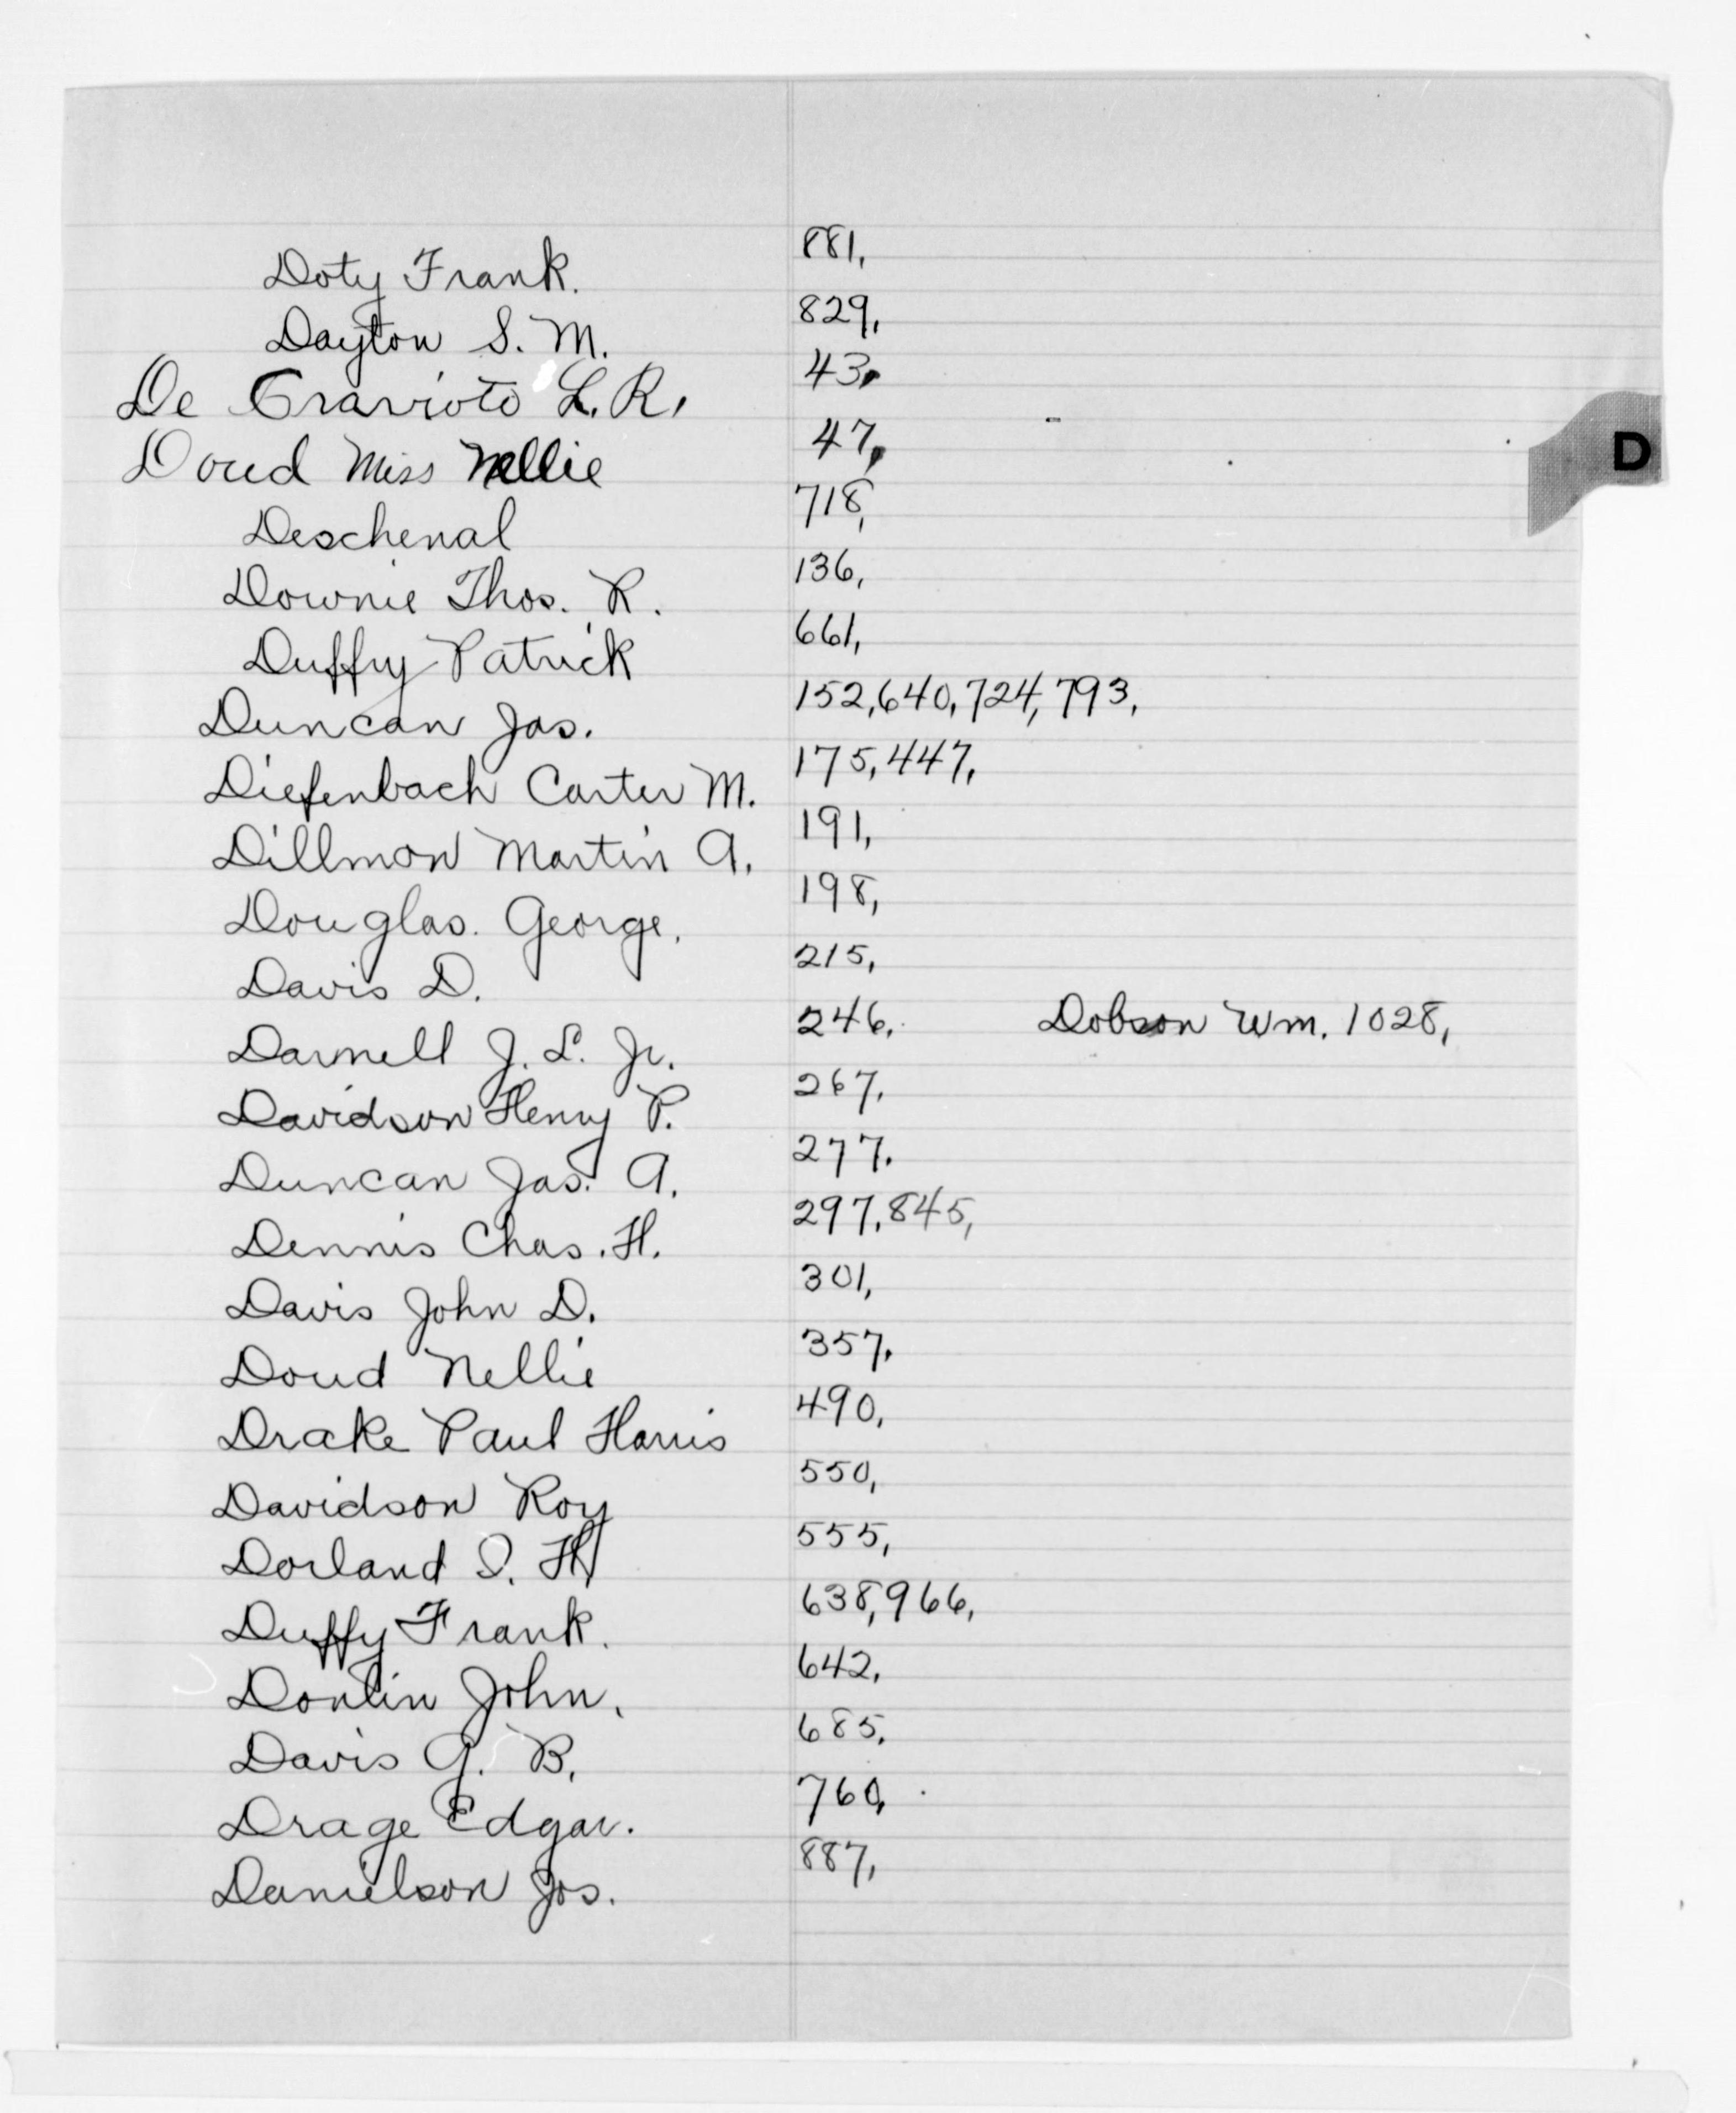 Doty Frank. 881,
Dayton S. M. 829,
De Gravioto L. R, 43,
Doud Miss Nellie 47,
D
Deschenal 718,
Downie Thos. R. 136,
Duffry Patrick 661,
Duncan Jas. 152,640,724,793,
Diefenbach Carter M. 175,447,
Dillmon Martin A. 191,
Douglas. George. 198,
Davis D. 215,
Darnell J. L. Jr. 246. Dobson Wm. 1028,
Davidson Henry P. 267,
Duncan Jas. A. 277.
Dennis Chas. H. 297,845,
Davis John D. 301,
Doud Nellie 357,
Drake Paul Harris 490,
Davidson Roy 550,
Dorland I. H 555,
Duffy Frank. 638,966,
Donlin John. 642,
Davis G. B. 685,
Drage Edgar. 760,
Danielson Jos. 887,